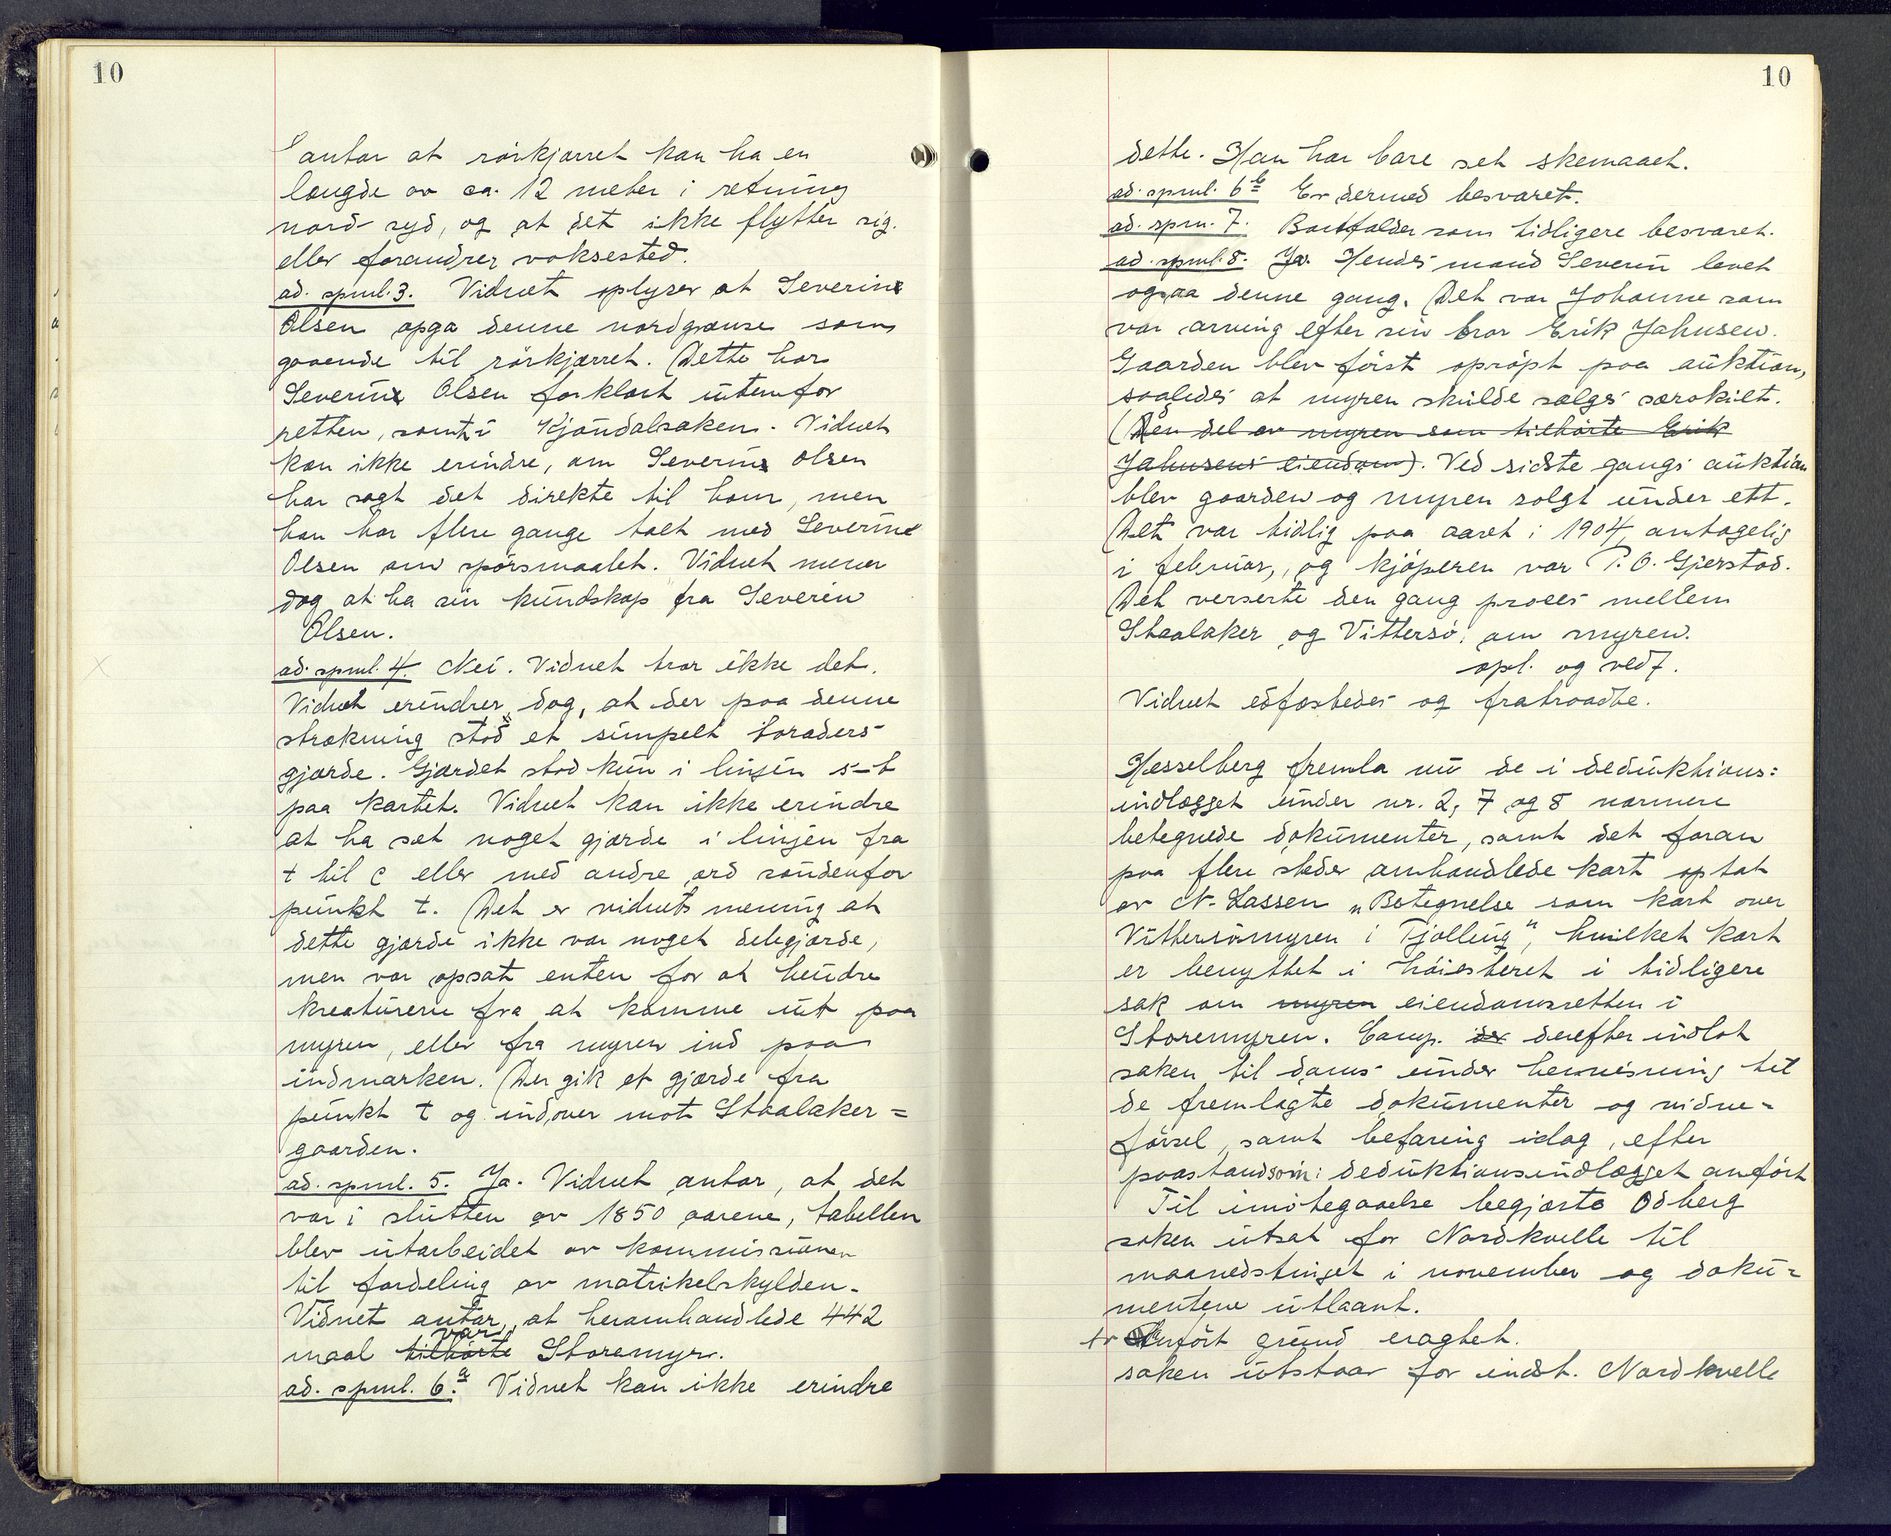 10
antar at rörkjærret kan ha en
længde av ca. 12 meter i retning
nord-syd, og at det ikke flytter sig.
eller forandrer voksested.
ad. spml. 3. Vidnet oplyser at Severine
Olsen opga denne nordgrænse som
gaaende til rörkjærret. Dette har
Severine Olsen forklart utenfor
retten, samt i Kjöndalsaken. Vidnet
kan ikke erindre, om Severine Olsen
har sagt det direkte til ham, men
han har flere gange talt med Severine
Olsen om spörsmaalet. Vidnet mener
dog at ha sin kundskap fra Severin
Olsen.
ad. spml. 4. Nei. Vidnet tror ikke det.
Vidnet erindrer dog, at der paa denne
strækning stod et simpelt toraders-
gjærde. Gjærdet stod kun i linjen s-t
paa kartet. Vidnet kan ikke erindre
at ha set noget gjærde i linjen fra
t til c eller med andre ord söndenfor
punkt t. Det er vidnets mening at
dette gjærde ikke var noget delegjærde,
men var opsat enten for at hindre
kreaturene fra at komme ut paa
myren, eller fra myren ind paa
indmarken. Der gik et gjærde fra
punkt t og indover mot Staalaker=
gaarden.
ad. spml. 5. Ja. Vidnet antar, at det
var i slutten av 1850 aarene, tabellen
blev utarbeidet av kommissionen
til fordeling av matrikelskylden.
Vidnet antar, at heromhandlede 442
maal tilhörte var Storemyr.
ad. spml. 6.a Vidnet kan ikke erindre
10
dette. Han har bare set skemaaet.
ad. spml. 6b Er dermed besvaret.
ad. spm. 7. Bortfalder som tidligere besvaret.
ad. spml. 8. Ja. Hendes mand Severin levet
ogsaa denne gang. Det var Johanne som
var arving efter sin bror Erik Jahnsen.
Gaarden blev först opröpt paa auktion,
saaledes at myren skulde sælges særskilt.
(Den del av myren som tilhörte Erik
Jahnsens eiendom). Ved sidste gangs auktion
blev gaarden og myren solgt under ett.
Det var tidlig paa aaret i 1904, antagelig
i februar, og kjöperen var P. O. Gjerstad.
Det verserte den gang proces mellem
Staalaker og Vittersö, om myren.
opl. og vedt.
Vidnet edfæstedes og fratraadte.
Hesselberg fremla nu de i deduktions=
indlægget under nr. 2, 7 og 8 nærmere
betegnede dokumenter, samt det foran
paa flere steder omhandlede kart optat
av N. Lassen „Betegnelse som kart over
Vittersömyren i Tjölling", hvilket kart
er benyttet i höiesteret i tidligere
sak om myren eiendomsretten i
Storemyren. Comp. der derefter indlot
saken til doms under henvisning til
de fremlagte dokumenter og vidne=
försel, samt befaring idag, efter
paastand som i deduktionsindlægget anfört
Til imötegaaelse begjærte Odberg
saken utsat for Nordkvelle til
maanedstinget i november og doku=
mentene utlaant.
Anfört grund eragtet.
saken utstaar for indst. Nordkvelle